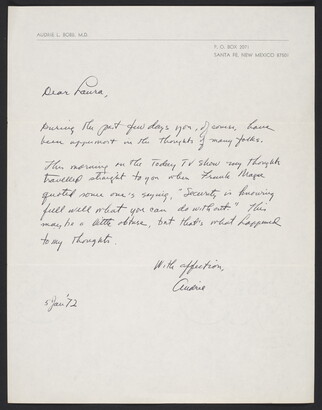 AUDRIE L. BOBB, M.D.
P. O. BOX 2071
SANTA FE, NEW MEXICO 87501
Dear Laura,
During the past few days you, of course, have
been uppermost in the thoughts of many folks.
This morning on the Today TV show my thoughts
travelled straight to you when Frank
quoted some one's saying, "Security is knowing
full well what you can do without." This
may be a little obtuse, but that's what happened
to my thoughts.
With affection,
Audrie
5 Jan '72